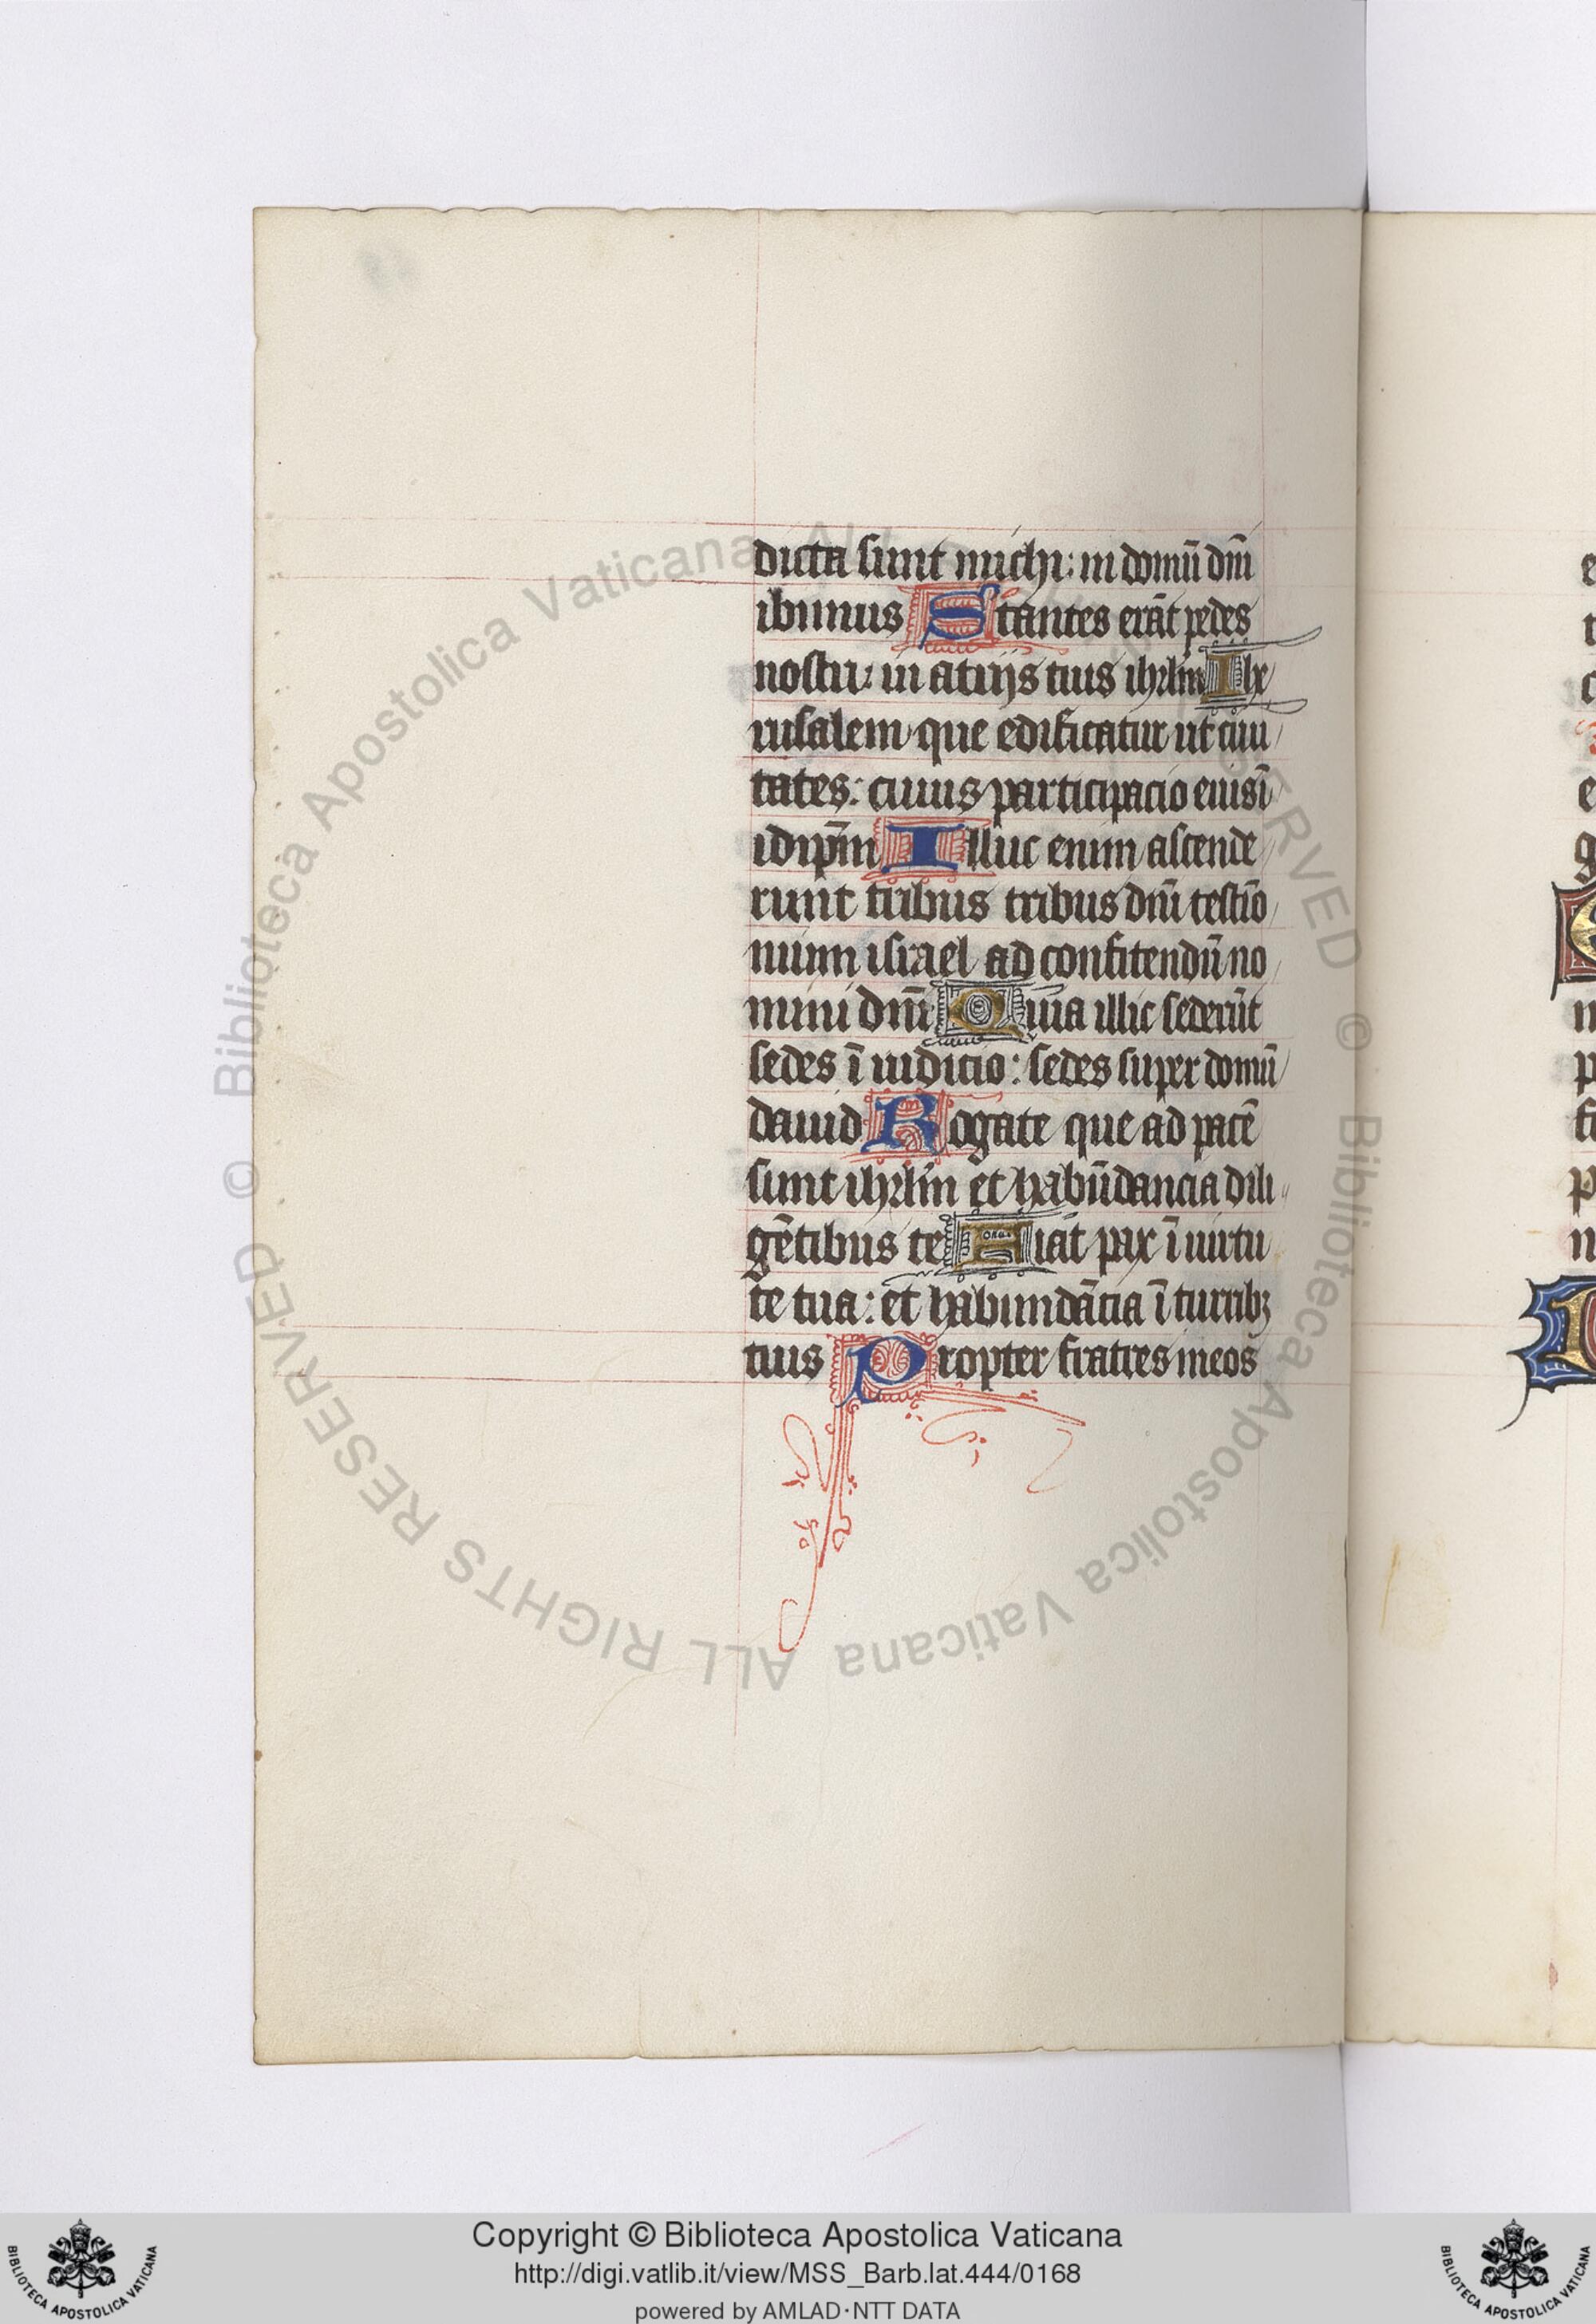 dicta sunt michi: in domū dnī
ibimus Stantes erāt pedes
nostri: in atrijs tuis ihrlm̄ Ihe
rusalem que edificatur ut ciui
tates: cuius participacio eius ī
idip̄m Illuc enim ascende
runt tribus tribus dnī testīo
nium israel ad confitendū no
mini dnī Quia illic sederūt
sedes ī iudicio: sedes super domū
dauid Rogate que ad pacē
sunt ihrlm̄ et habūdancia dili
gētibus te Fiat pax ī uirtu
te tua: et habundācia ī turribꝫ
tuis Propter fratres meos
Biblioteca Apostolica Vaticana ALL RIGHTS RESERVED ©
Copyright © Biblioteca Apostolica Vaticana
http://digi.vatlib.it/view/MSS_Barb.lat.444/0168
powered by AMLAD·NTT DATA
BIBLIOTECA APOSTOLICA VATICANA
BIBLIOTECA APOSTOLICA VATICANA